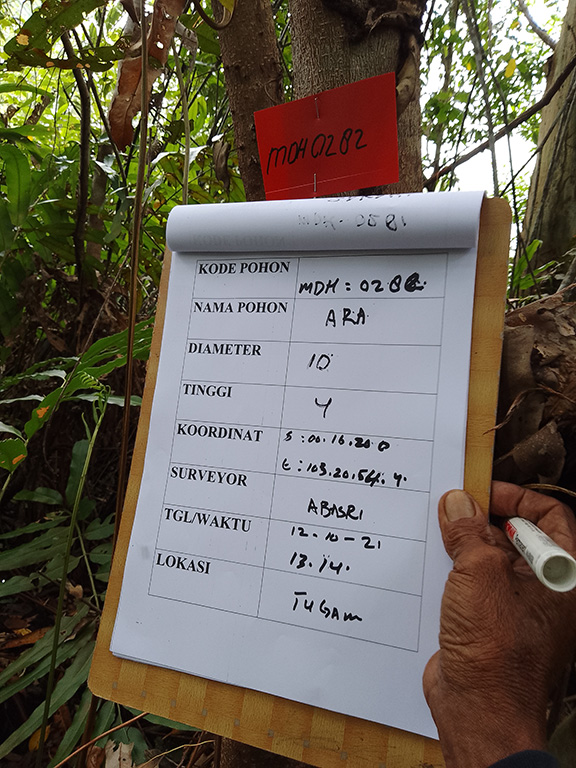 MDH 0282
MDH - 0281
KODE POHON MDH : 0282
NAMA POHON ARA
DIAMETER 10
TINGGI 4
KOORDINAT S : 00.16.20 0
E : 103.20.54.4
SURVEYOR ABASRI
TGL/WAKTU 12-10-21
13.14.
LOKASI TUGAM